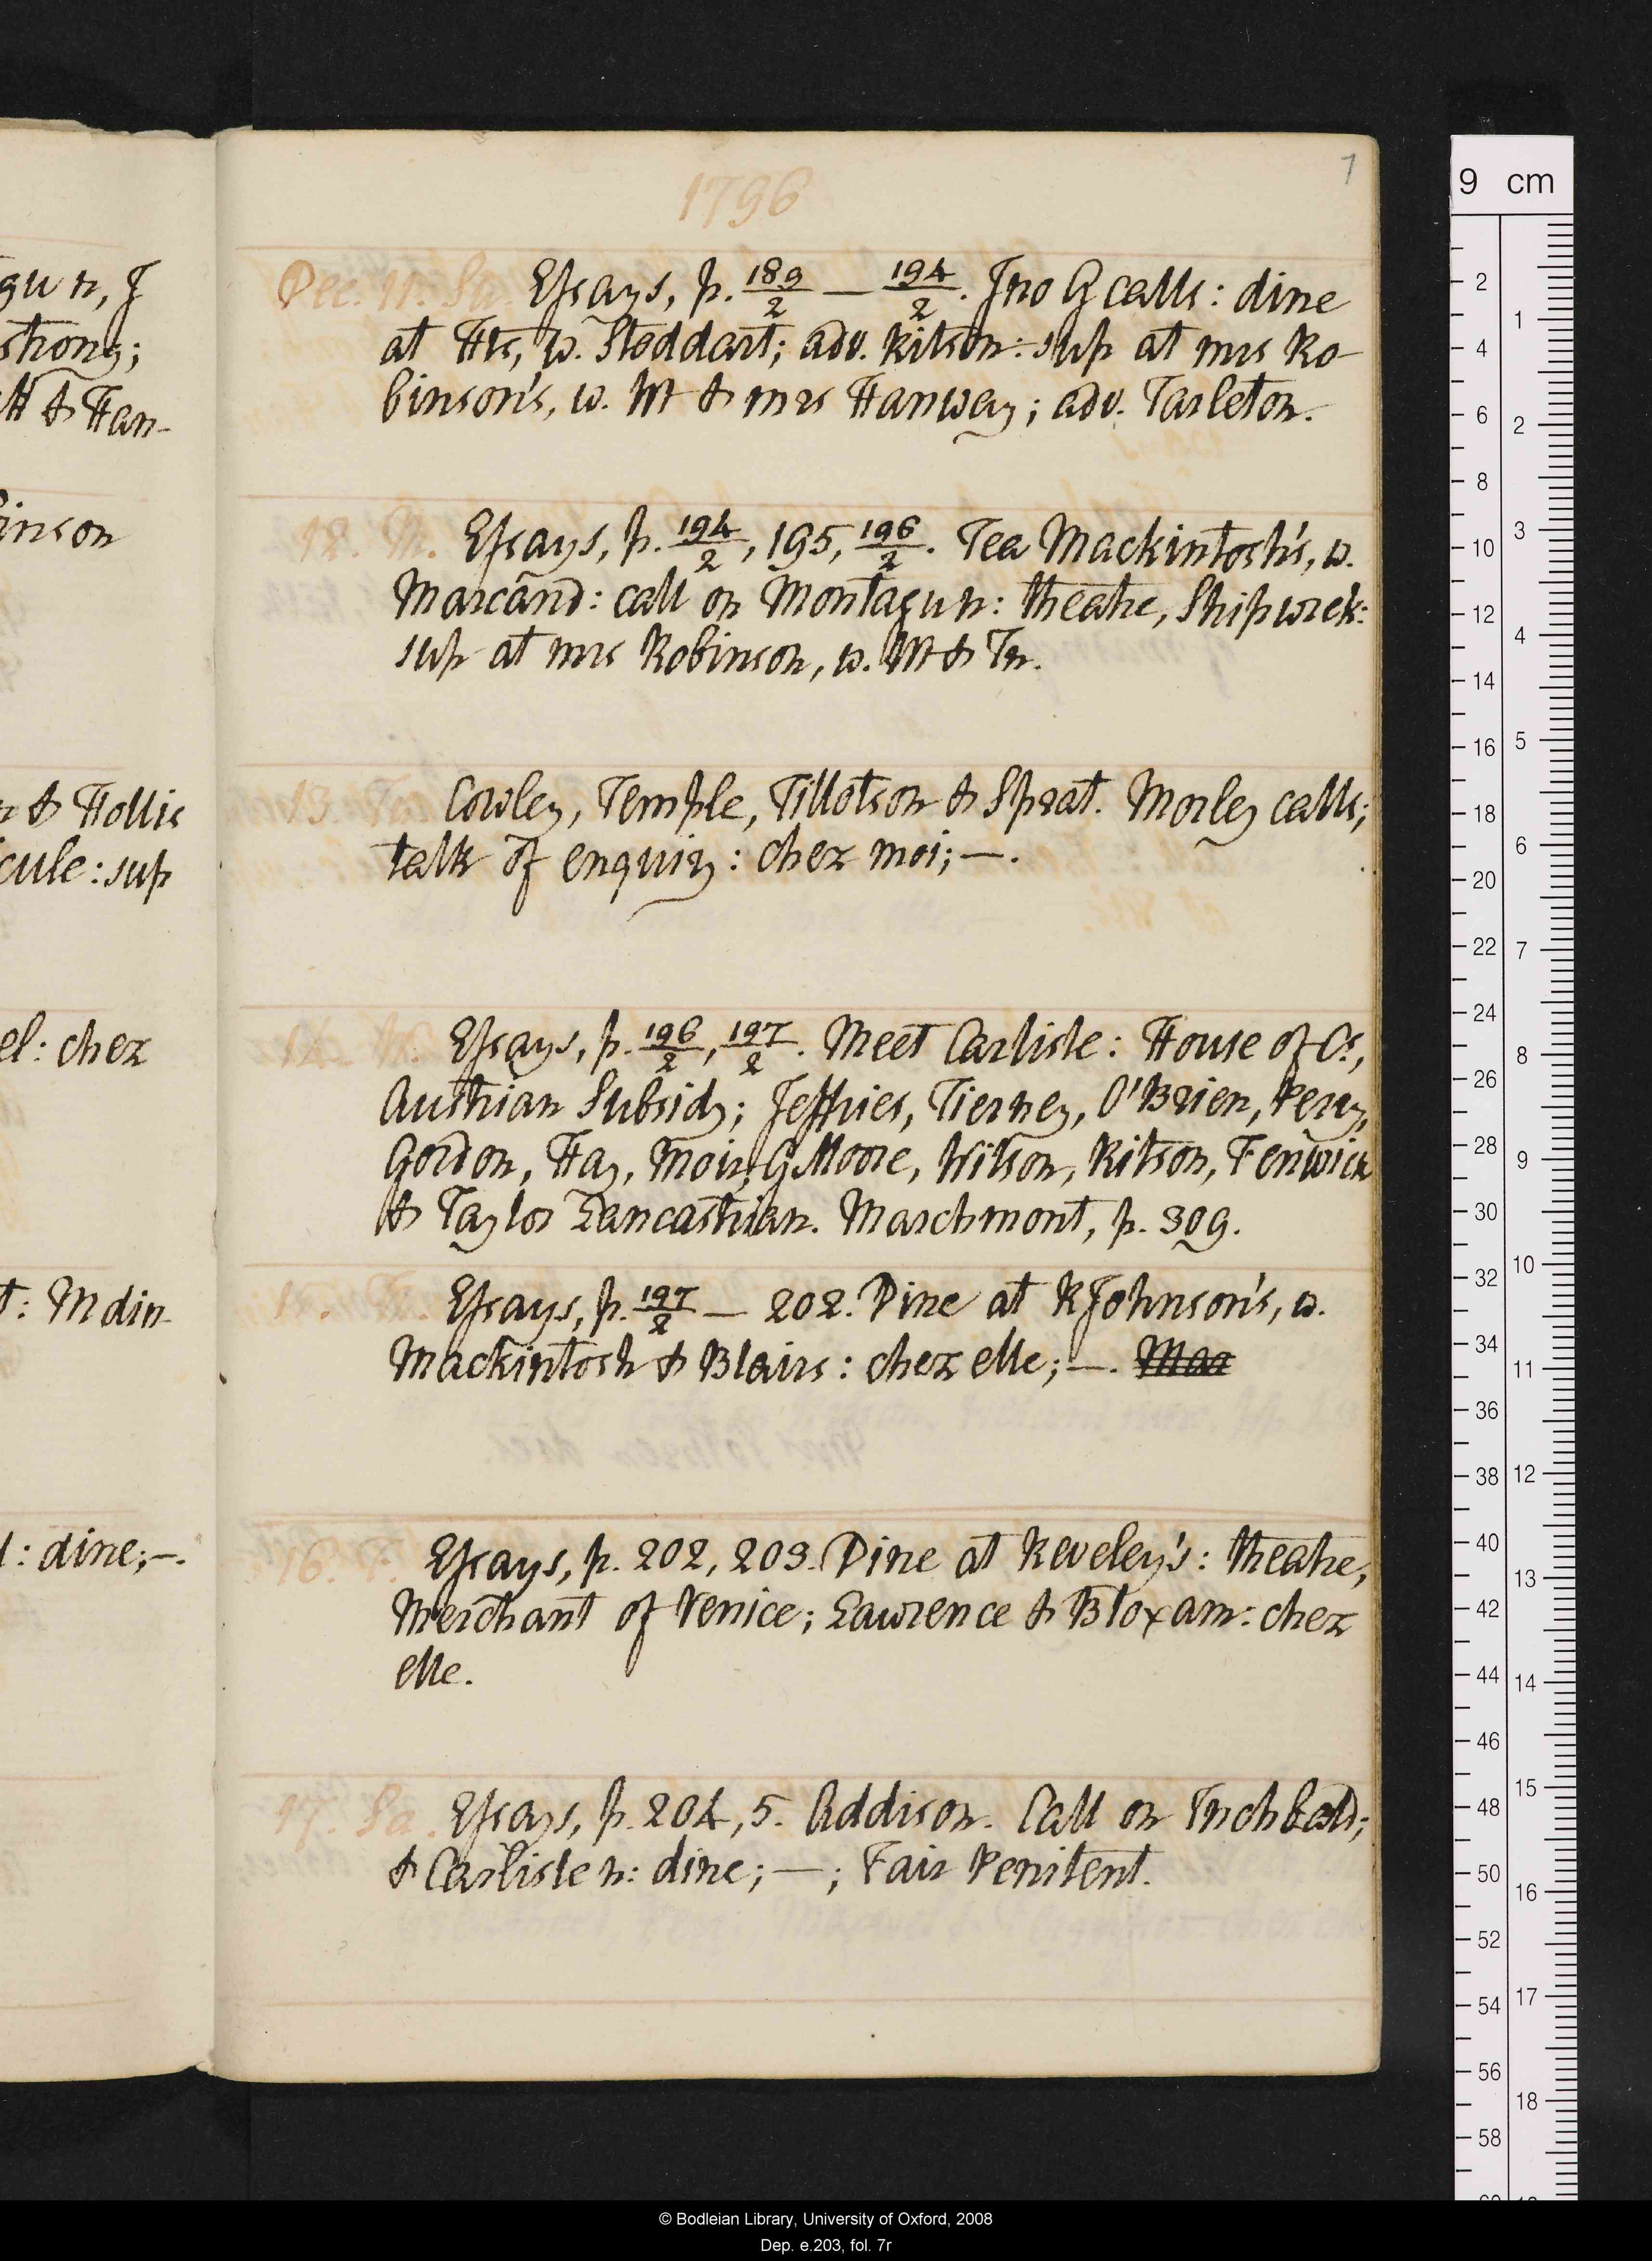 7
1796
gun, J
strong;
H & Han-
binson
& Hollis
cule: sup
el: chez
t: M din
: dine; —.
Dec. 11. Su. Essays, p. 189/2 — 194/2. Jno G calls: dine
at Hts, w. Stoddart; adv. Ritson: sup at mrs Ro-
binson's, w. M & mrs Hanway; adv. Tarleton.
12. M. Essays, p. 194/2, 195, 196/2. Tea Mackintosh's, w.
Marcand: call on Montagu n: theatre, Shipwrek:
sup at mrs Robinson, w. M & Tn.
13. Tu. Cowley, Temple, Tillotson & Sprat. Morley calls;
talk of enquiry: chez moi; —.
14. W. Essays, p. 196/2, 197/2. Meet Carlisle: House of Cs,
Austrian Subsidy; Jeffries, Tierney, O'Brien, Perry,
Gordon, Hay, Moir, G Moore, Wilson, Ritson, Fenwick
& Taylor Lancastrian. Marchmont, p. 309.
15. Th. Essays, p. 197/2 — 202. Dine at R Johnson's, w.
Mackintosh & Blairs: chez elle; —. Maa
16. F. Essays, p. 202, 203. Dine at Reveley's: theatre,
Merchant of Venice; Lawrence & Bloxam: chez
elle.
17. Sa. Essays, p. 204, 5. Addison. Call on Inchbald;
& Carlisle n: dine; —; Fair Penitent.
9 cm
2
4
6
8
10
12
14
16
18
20
22
24
26
28
30
32
34
36
38
40
42
44
46
48
50
52
54
56
58
1
2
3
4
5
6
7
8
9
10
11
12
13
14
15
16
17
18
© Bodleian Library, University of Oxford, 2008
Dep. e.203, fol. 7r